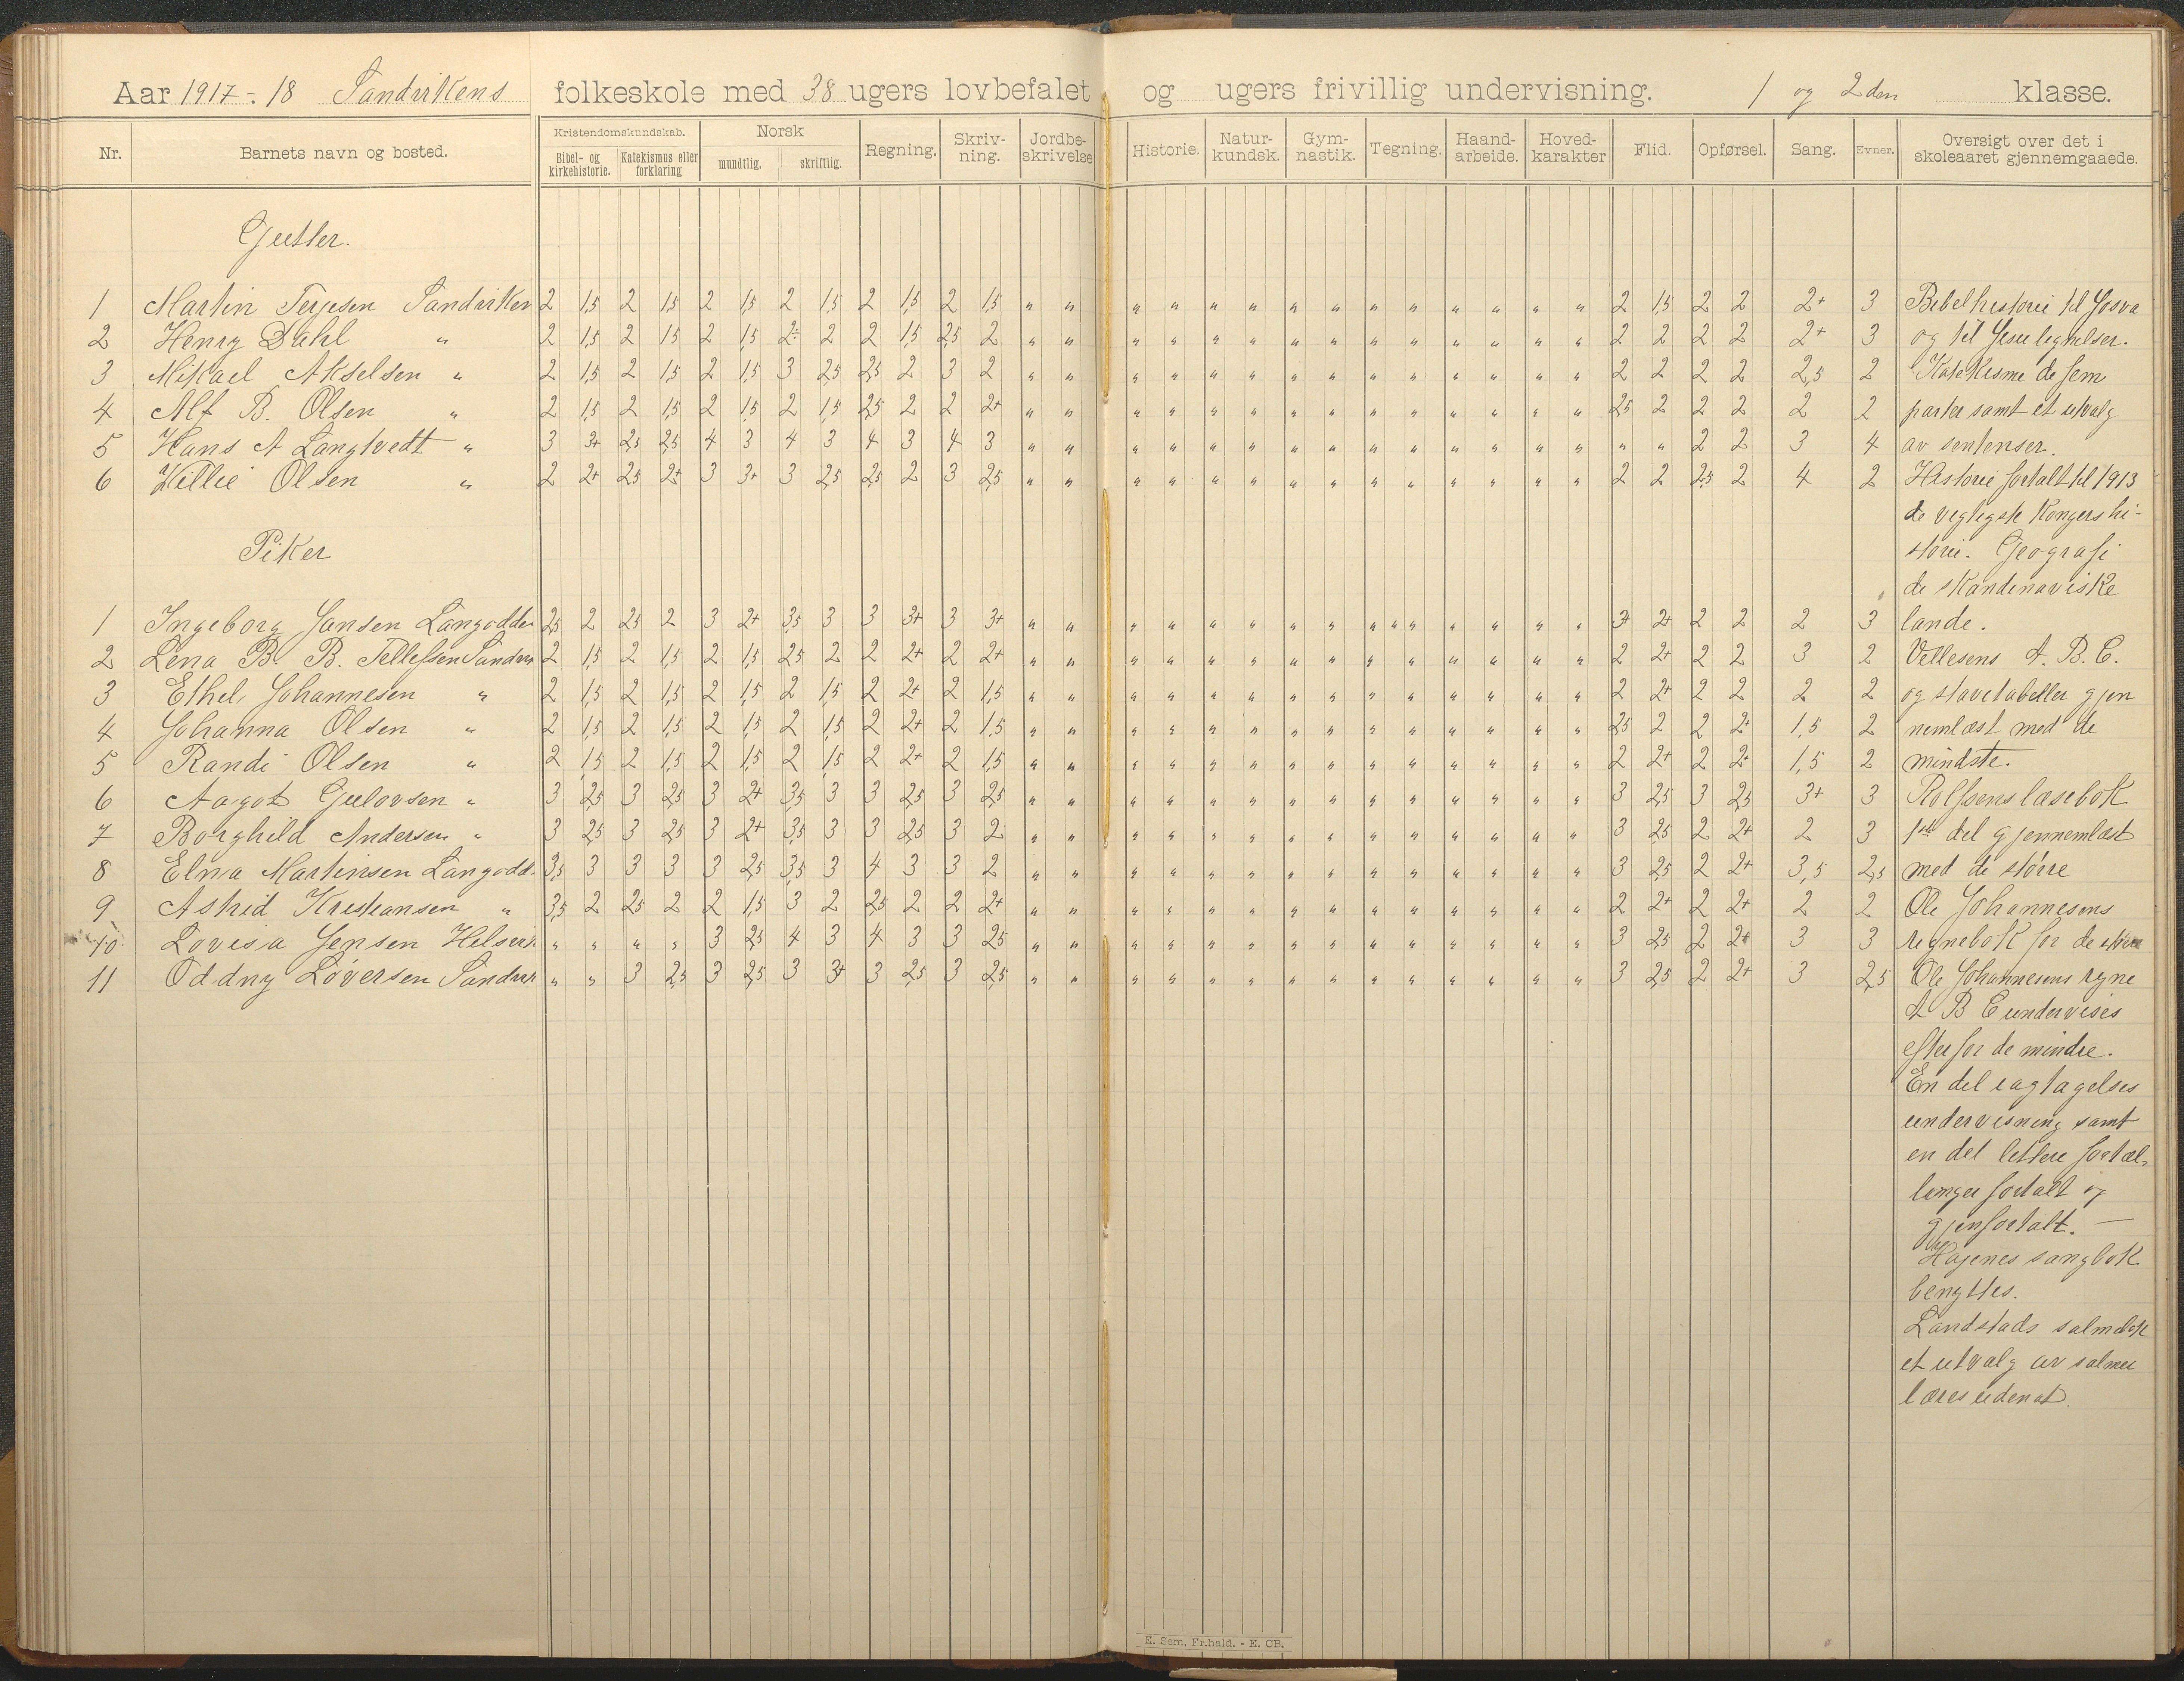 Aar 1917-18 Sandvikens folkeskole med 38 ugers lovbefalet og ugers frivillig undervisning. 1 og 2den klasse.
Nr. Barnets navn og bosted. Kristendomskundskab. Bibel- og kirkehistorie. Katekismus eller forklaring Norsk mundtlig. skriftlig. Regning. Skriv-ning. Jordbe-skrivelse Historie. Natur-kundsk. Gym-nastik. Tegning. Haand-arbeide. Hoved-karakter Flid. Opførsel. Sang. Evner. Oversigt over det i skoleaaret gjennemgaaede.
Gutter.
1 Martin Terjesen Sandviken 2 1,5 2 1,5 2 1,5 2 1,5 2 1,5 2 1,5 " " " " " " " " " " " " " " 2 1,5 2 2 2+ 3 Bibelhistorie til Josva
2 Henry Dahl " 2 1,5 2 15 2 1,5 2÷ 2 2 15 2,5 2 " " " " " " " " " " " " " " 2 2 2 2 2+ 3 og til Jesu lignelser.
3 Mikael Akselsen " 2 1,5 2 1,5 2 1,5 3 2,5 2,5 2 3 2 " " " " " " " " " " " " " " 2 2 2 2 2,5 2 Katekisme de fem
4 Alf B. Olsen " 2 1,5 2 1,5 2 1,5 2 1,5 2,5 2 2 2+ " " " " " " " " " " " " " " 25 2 2 2 2 2 parter samt et utvalg
5 Hans A Langtvedt " 3 3+ 2,5 2,5 4 3 4 3 4 3 4 3 " " " " " " " " " " " " " " " " 2 2 3 4 av sentenser.
6 Willie Olsen " 2 2+ 25 2+ 3 3+ 3 2,5 2,5 2 3 2,5 " " " " " " " " " " " " " " 2 2 2,5 2 4 2 Historie fortalt til 1913
de vigtigste kongers hi-
Piker storie. Geografi
de skandinaviske
1 Ingeborg Jansen Langodden 2,5 2 25 2 3 2+ 3,5 3 3 3+ 3 3+ " " " " " " " " " " " " " " " 3+ 2+ 2 2 2 3 lande.
2 Lena B. B. Tellefsen Sandvik 2 1,5 2 1,5 2 1,5 25 2 2 2+ 2 2+ " " " " " " " " " " " " " " 2 2+ 2 2 3 2 Vellesens A. B. C.
3 Ethel Johannesen " 2 1,5 2 1,5 2 1,5 2 1,5 2 2+ 2 1,5 " " " " " " " " " " " " " " 2 2+ 2 2 2 2 og stavetabeller gjen
4 Johanna Olsen " 2 1,5 2 1,5 2 1,5 2 1,5 2 2+ 2 1,5 " " " " " " " " " " " " " " 25 2 2 2+ 1,5 2 nemlæst med de
5 Randi Olsen " 2 1,5 2 1,5 2 1,5 2 1,5 2 2+ 2 1,5 " " " " " " " " " " " " " " 2 2+ 2 2+ 1,5 2 mindste.
6 Aagot Gulovsen " 3 2,5 3 2,5 3 2+ 3,5 3 3 2,5 3 2,5 " " " " " " " " " " " " " " 3 2,5 3 2,5 3+ 3 Rolfsens læsebok
7 Borghild Andersen " 3 2,5 3 2,5 3 2+ 3,5 3 3 2,5 3 2 " " " " " " " " " " " " " " 3 25 2 2+ 2 3 1ste del gjennemlæst
8 Elna Martinsen Langodd. 3,5 3 3 3 3 2,5 3,5 3 4 3 3 2 " " " " " " " " " " " " " " 3 2,5 2 2+ 3,5 2,5 med de større
9 Astrid Kristiansen " 3,5 2 25 2 2 1,5 3 2 2,5 2 2 2+ " " " " " " " " " " " " " " 2 2+ 2 2+ 2 2 Ole Johannesens
10. Lovisa Jensen " " " " 3 2,5 4 3 4 3 3 25 " " " " " " " " " " " " " " 3 25 2 2+ 3 3 regnebok for de større
11 Oddny Løversen Sandvik " " 3 2,5 3 2,5 3 3+ 3 2,5 3 2,5 " " " " " " " " " " " " " " 3 2,5 2 2+ 3 2,5 Ole Johannesens regne
A B C undervises
efter for de mindre.
En del iagtagelses
undervisning samt
en del lettere fortæl-
linger fortalt og
gjenfortalt. —
Hagenes sangbok
benyttes.
Landstads salmebok
et utvalg av salmer
læres udenat.
E. Sem, Fr.hald. - E. CB.